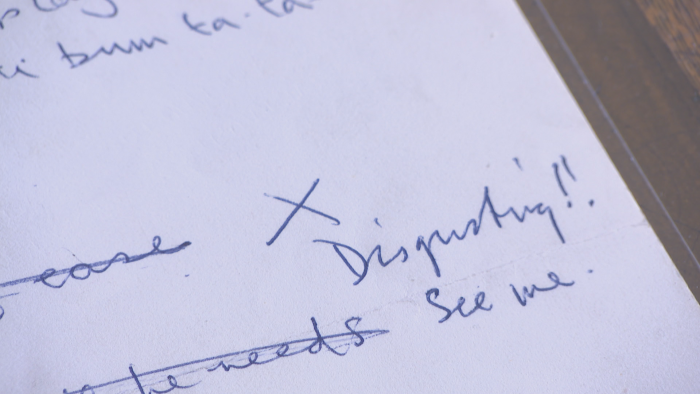 bum ta-ta-
ease X Disgusting!!
he needs See me.